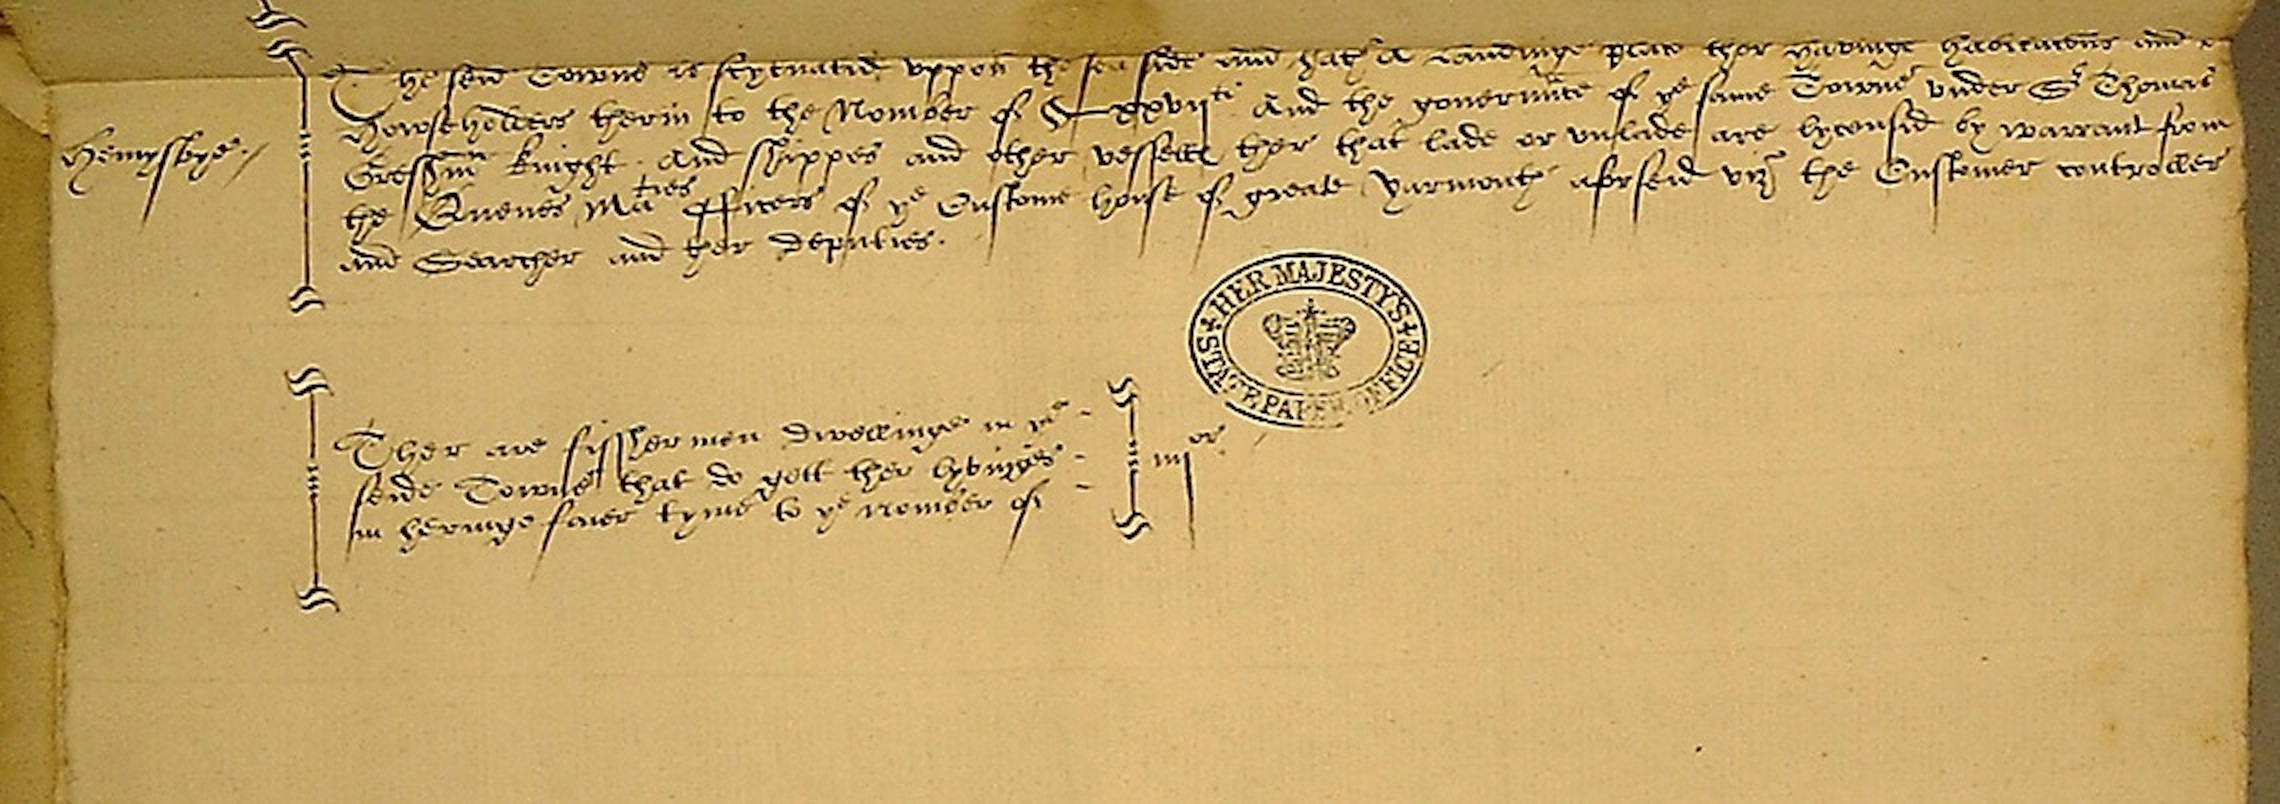 Hemysbye
The seid Towne is scytuatid vppon the sea side and hath A landinge place ther havinge habitacons and
howseholders therin to the Nomber of And the governmte of ye same Towne vnder Sr Thomas
Gressam knight. And shippes and other vessell ther that lade or vnlade are lycensid by warrant from
the Quenes Maties officers of ye Custome house of greate Yarmouth aforseid viz the Customer controller
and Searcher and ther deputies.
HER MAJESTY'S STATE PAPER OFFICE
Ther are fissher men dwellinge in ye
seide Towne that do gett ther lyvinges
in heringe faier tyme to ye nomber of
iiijor